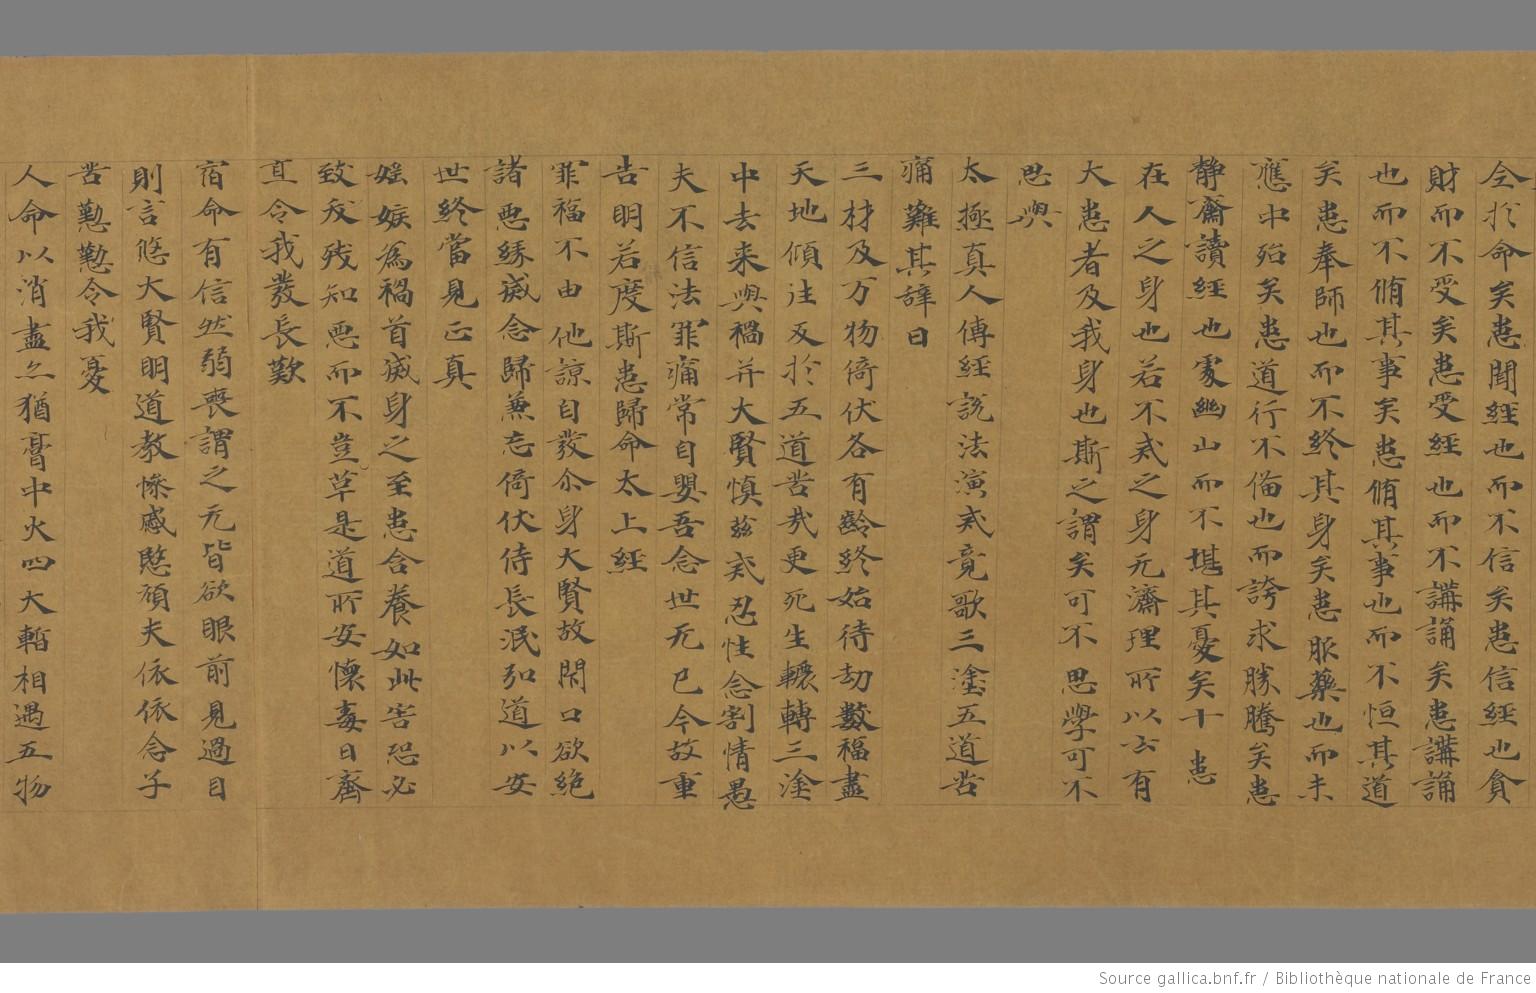 全於命矣患聞經也而不信矣患信經也貪
財而不受矣患受經也而不講誦矣患講誦
也而不脩其事矣患脩其事也而不恒其道
矣患奉師也而不終其身矣患服藥也而未
應中殆矣患道行不俻也而誇求勝騰矣患
静齋讀經也處幽山而不堪其憂矣十患
在人之身也若不戒之身无濟理所以云有
大患者及我身也斯之謂矣可不思學可不
思與
太極真人傳經說法演戒竟歌三塗五道苦
痛難其辞曰
三材及万物倚伏各有齡終始待劫數福盡
天地傾往反於五道苦哉更死生轗轉三塗
中去来與禍并大賢慎兹戒忍性念割情愚
夫不信法罪痛常自嬰吾念世无已今故重
告明若度斯患歸命太上經
罪福不由他諒自發尒身大賢故閇口欲絶
諸悪緣烕念歸兼忘倚伏侍長泯弘道以安
世終當見正真
婬嫉為禍首烕身之至患含養如此害恐必
致灾残知悪而不豈草是道所安懷毒日齋
直令我發長歎
宿命有信然弱喪謂之无皆欲眼前見過目
則言悠大賢明道教惨慼愍頑夫依依念子
苦懃懃令我憂
人命以消盡亦猶膏中火四大暫相遇五物
Source gallica.bnf.fr / Bibliothèque nationale de France